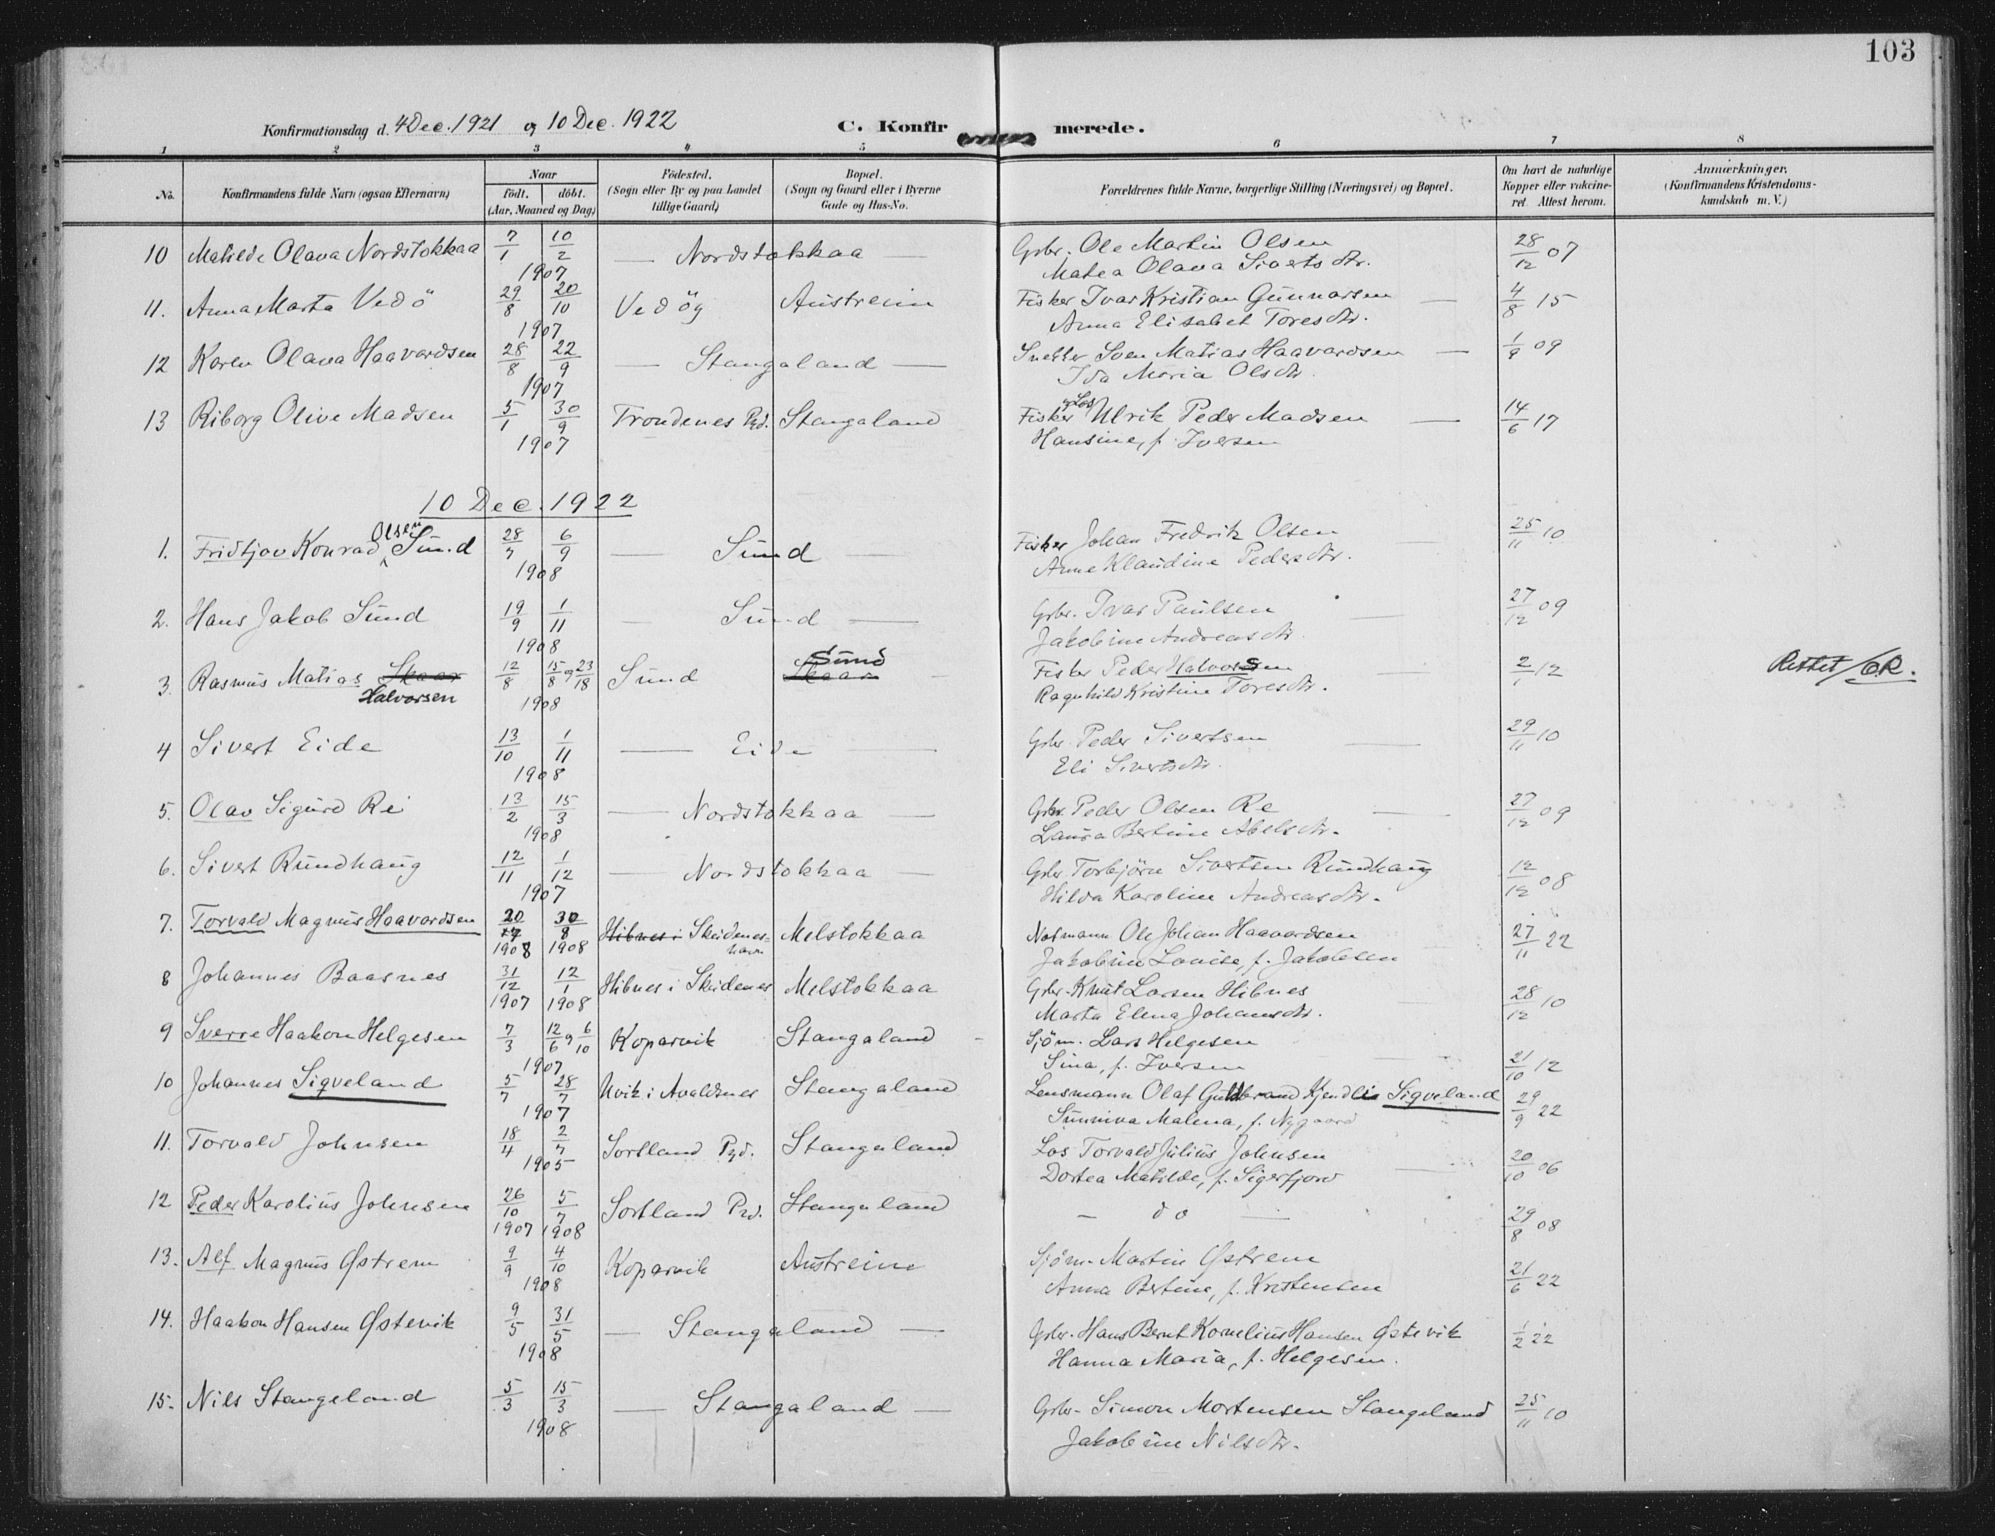 103
Konfirmationsdag d. 4 Dec. 1921 og 10 Dec. 1922 C. Konfirmerede.
1 2 3 4 5 6 7 8
No. Konfirmandens fulde Navn (ogsaa Efternavn) Naar født. døbt. (Aar, Maaned og Dag) Fødested. (Sogn eller By og paa Landet tillige Gaard) Bopæl. (Sogn og Gaard eller i Byerne Gade og Hus-No. Forældrenes fulde Navne, borgerlige Stilling (Næringsvei) og Bopæl. Om havt de naturlige Kopper eller vakcineret. Attest herom. Anmærkninger. (Konfirmandens Kristendomskundskab m. V.)
10 Matilde Olava Nordstokkaa 7/1 10/2 — Nordstokkaa — Gbr. Ole Martin Olsen 28/12 07
1907 Matea Olava Sivertsdtr.
11. Anna Marta Vedö 29/8 20/10 Vedöy Austreim Fisker Ivar Kristian Gunnarsen — 4/8 15
1907 Anna Elisabet Toresdtr.
12 Karen Olava Haavardsen 28/8 22/9 — Stangaland — Snekker Sven Matias Haavardsen — 1/9 09
1907 Ida Maria Olsdtr.
13 Riborg Olive Madsen 5/1 30/9 Trondenes Pgd. Stangaland Fisker og Los Ulrik Peder Madsen — 14/6 17
1907 Hansine, f. Iversen
10 Dec. 1922
1. Fridtjov Konrad Olsen Sund 28/7 6/9 — Sund — Fisker Johan Fredrik Olsen — 25/11 10
1908 Anne Klaudine Pedersdtr.
2. Hans Jakob Sund 19/9 1/11 — Sund — Gbr. Ivar Paulsen — 27/12 09
1908 Jakobine Andreasdtr.
3. Rasmus Matias Skaar Halvorsen 12/8 15/8 og 23/18 Sund Skaar Sund Fisker Peder Halvorsen — 2/1 12 Rettet/OR.
1908 Ragnhild Kristine Toresdtr.
4 Sivert Eide 13/10 1/11 — Eide — Gbr. Peder Sivertsen — 29/11 10
1908 Eli Sivertsdtr.
5. Olav Sigurd Re 13/2 15/3 — Nordstokkaa — Gbr. Peder Olsen Re — 27/12 09
1908 Laura Bertine Abelsdtr.
6. Sivert Rundhaug 12/11 1/12 — Nordstokkaa — Gbr. Torbjørn Sivertsen Rundhaug 12/12 08
1907 Hilda Karoline Andreasdtr.
7. Torvald Magnus Haavardsen 20/7 30/8 Hibnes i Skudeneshavn Melstokkaa Notmann Ole Johan Haavardsen 27/11 22
1908 1908 Jakobine Louise, f. Jakobsen
8 Johannes Baasnes 31/12 12/1 Hibnes i Skudenes Melstokkaa Gbr. Knut Larsen Hibnes 28/12 10
1907 1908 Marta Elena Johansdtr.
9 Sverre Haakon Helgesen 7/3 12/6 og 6/10 Kopervik Stangaland Sjöm. Lars Helgesen
1907 Sina, f. Iversen 21/10 12
10 Johannes Sigveland 5/7 28/7 Utvik i Avaldsnes Stangaland Lensmann Olaf Guldbrand Kjendlie Sigveland 29/9 22
1907 Sunniva Malena, f. Nygaard
11. Torvald Johnsen 18/4 2/7 Sortland Pgd. Stangaland Los Torvald Julius Johnsen — 20/10 06
1905 Dortea Matilde, f. Sigerfjord
12 Peder Karolius Johnsen 26/10 5/7 Sortland Pgd. Stangaland — do — 29/8 08
1907 1908
13. Alf Magnus Østrem 9/9 4/10 Kopervik Austreim Sjøm. Martin Østrem 21/6 22
1908 Anna Bertine, f. Kristensen
14. Haakon Hansen Østevik 9/5 31/5 — Stangaland — Gbr. Hans Bernt Kornelius Hansen Østevik 1/2 22
1908 Hanna Maria, f. Helgesen.
15. Nils Stangeland 5/3 15/3 — Stangaland — Gbr. Simon Mortensen Stangeland 25/11 10
1908 Jakobine Nilsdtr.